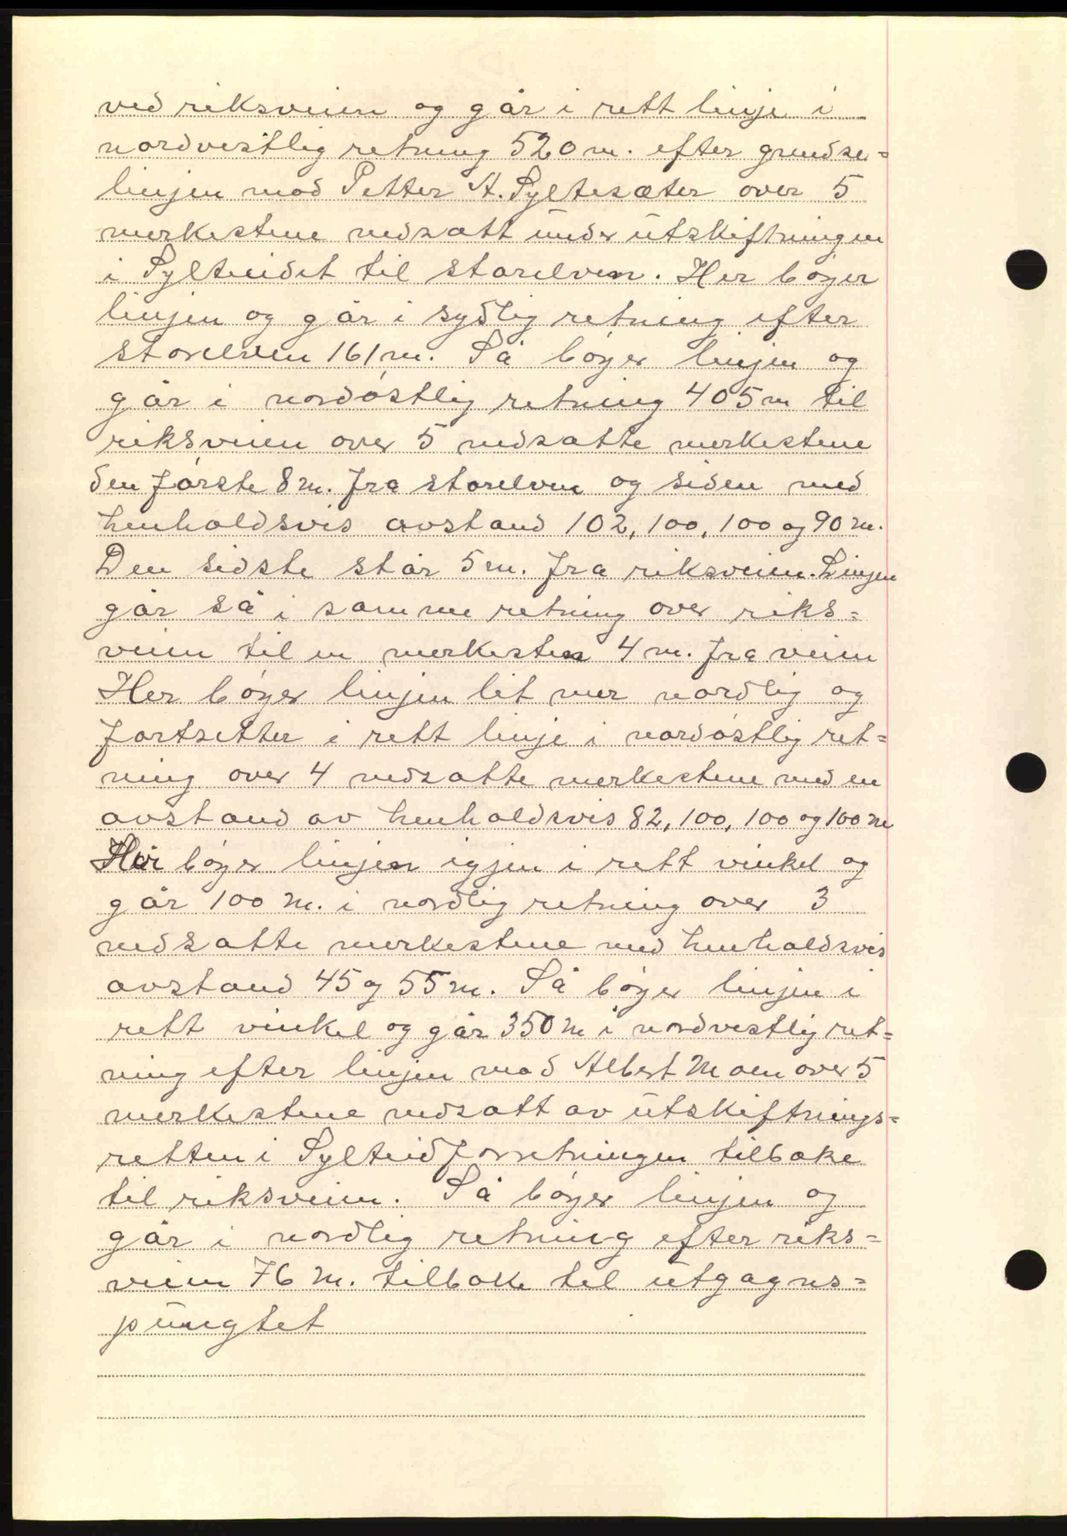 ved riksveien og går i rett linje i
nordvestlig retning 520 m. efter grendse=
linjen mod Petter A. Syltesæter over 5
merkestene nedsatt under utskiftningen
i Sylteidet til storelven. Her bøyer
linjen og går i sydlig retning efter
storelven 161 m. Så bøyer linjen og
går i nordøstlig retning 405 m til
riksveien over 5 nedsatte merkestene
den første 8 m. fra storelven og siden med
henholdsvis avstand 102, 100, 100 og 90 m.
Den sidste står 5 m. fra riksveien. Linjen
går så i samme retning over riks=
veien til en merkesten 4 m. fra veien
Her bøyer linjen lit mer nordlig og
fortsetter i rett linje i nordøstlig ret=
ning over 4 nedsatte merkestene med en
avstand av henholdsvis 82, 100, 100 og 100 m
Her bøyer linjen igjen i rett vinkel og
går 100 m. i nordlig retning over 3
nedsatte merkestene med henholdsvis
avstand 45 og 55 m. Så bøyer linjen i
rett vinkel og går 350 m i nordvestlig ret=
ning efter linjen mod Albert Moen over 5
merkestene nedsatt av utskiftnings=
retten i Sylteidforretningen tilbake
til riksveien. Så bøyer linjen og
går i nordlig retning efter riks=
veien 76 m. tilbake til utgagns=
pungtet